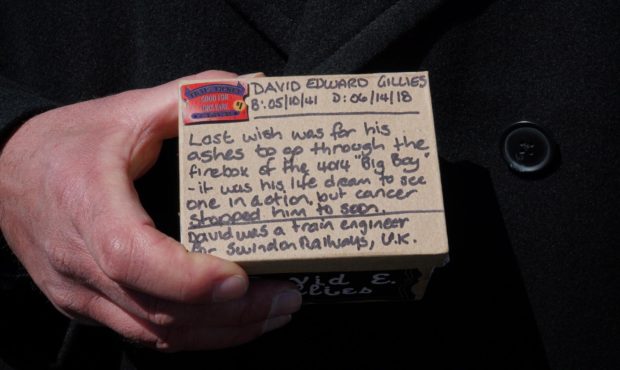 TRAIN TICKET
GOOD FOR
ONE FARE
DAVID EDWARD GILLIES
B: 05/10/41 D: 06/14/18
Last wish was for his
ashes to go through the
firebox of the 4014 "Big Boy"
- it was his life dream to see
one in action, but cancer
stopped him to soon.
David was a train engineer
for Swindon Railways, U.K.
vid E.
llies